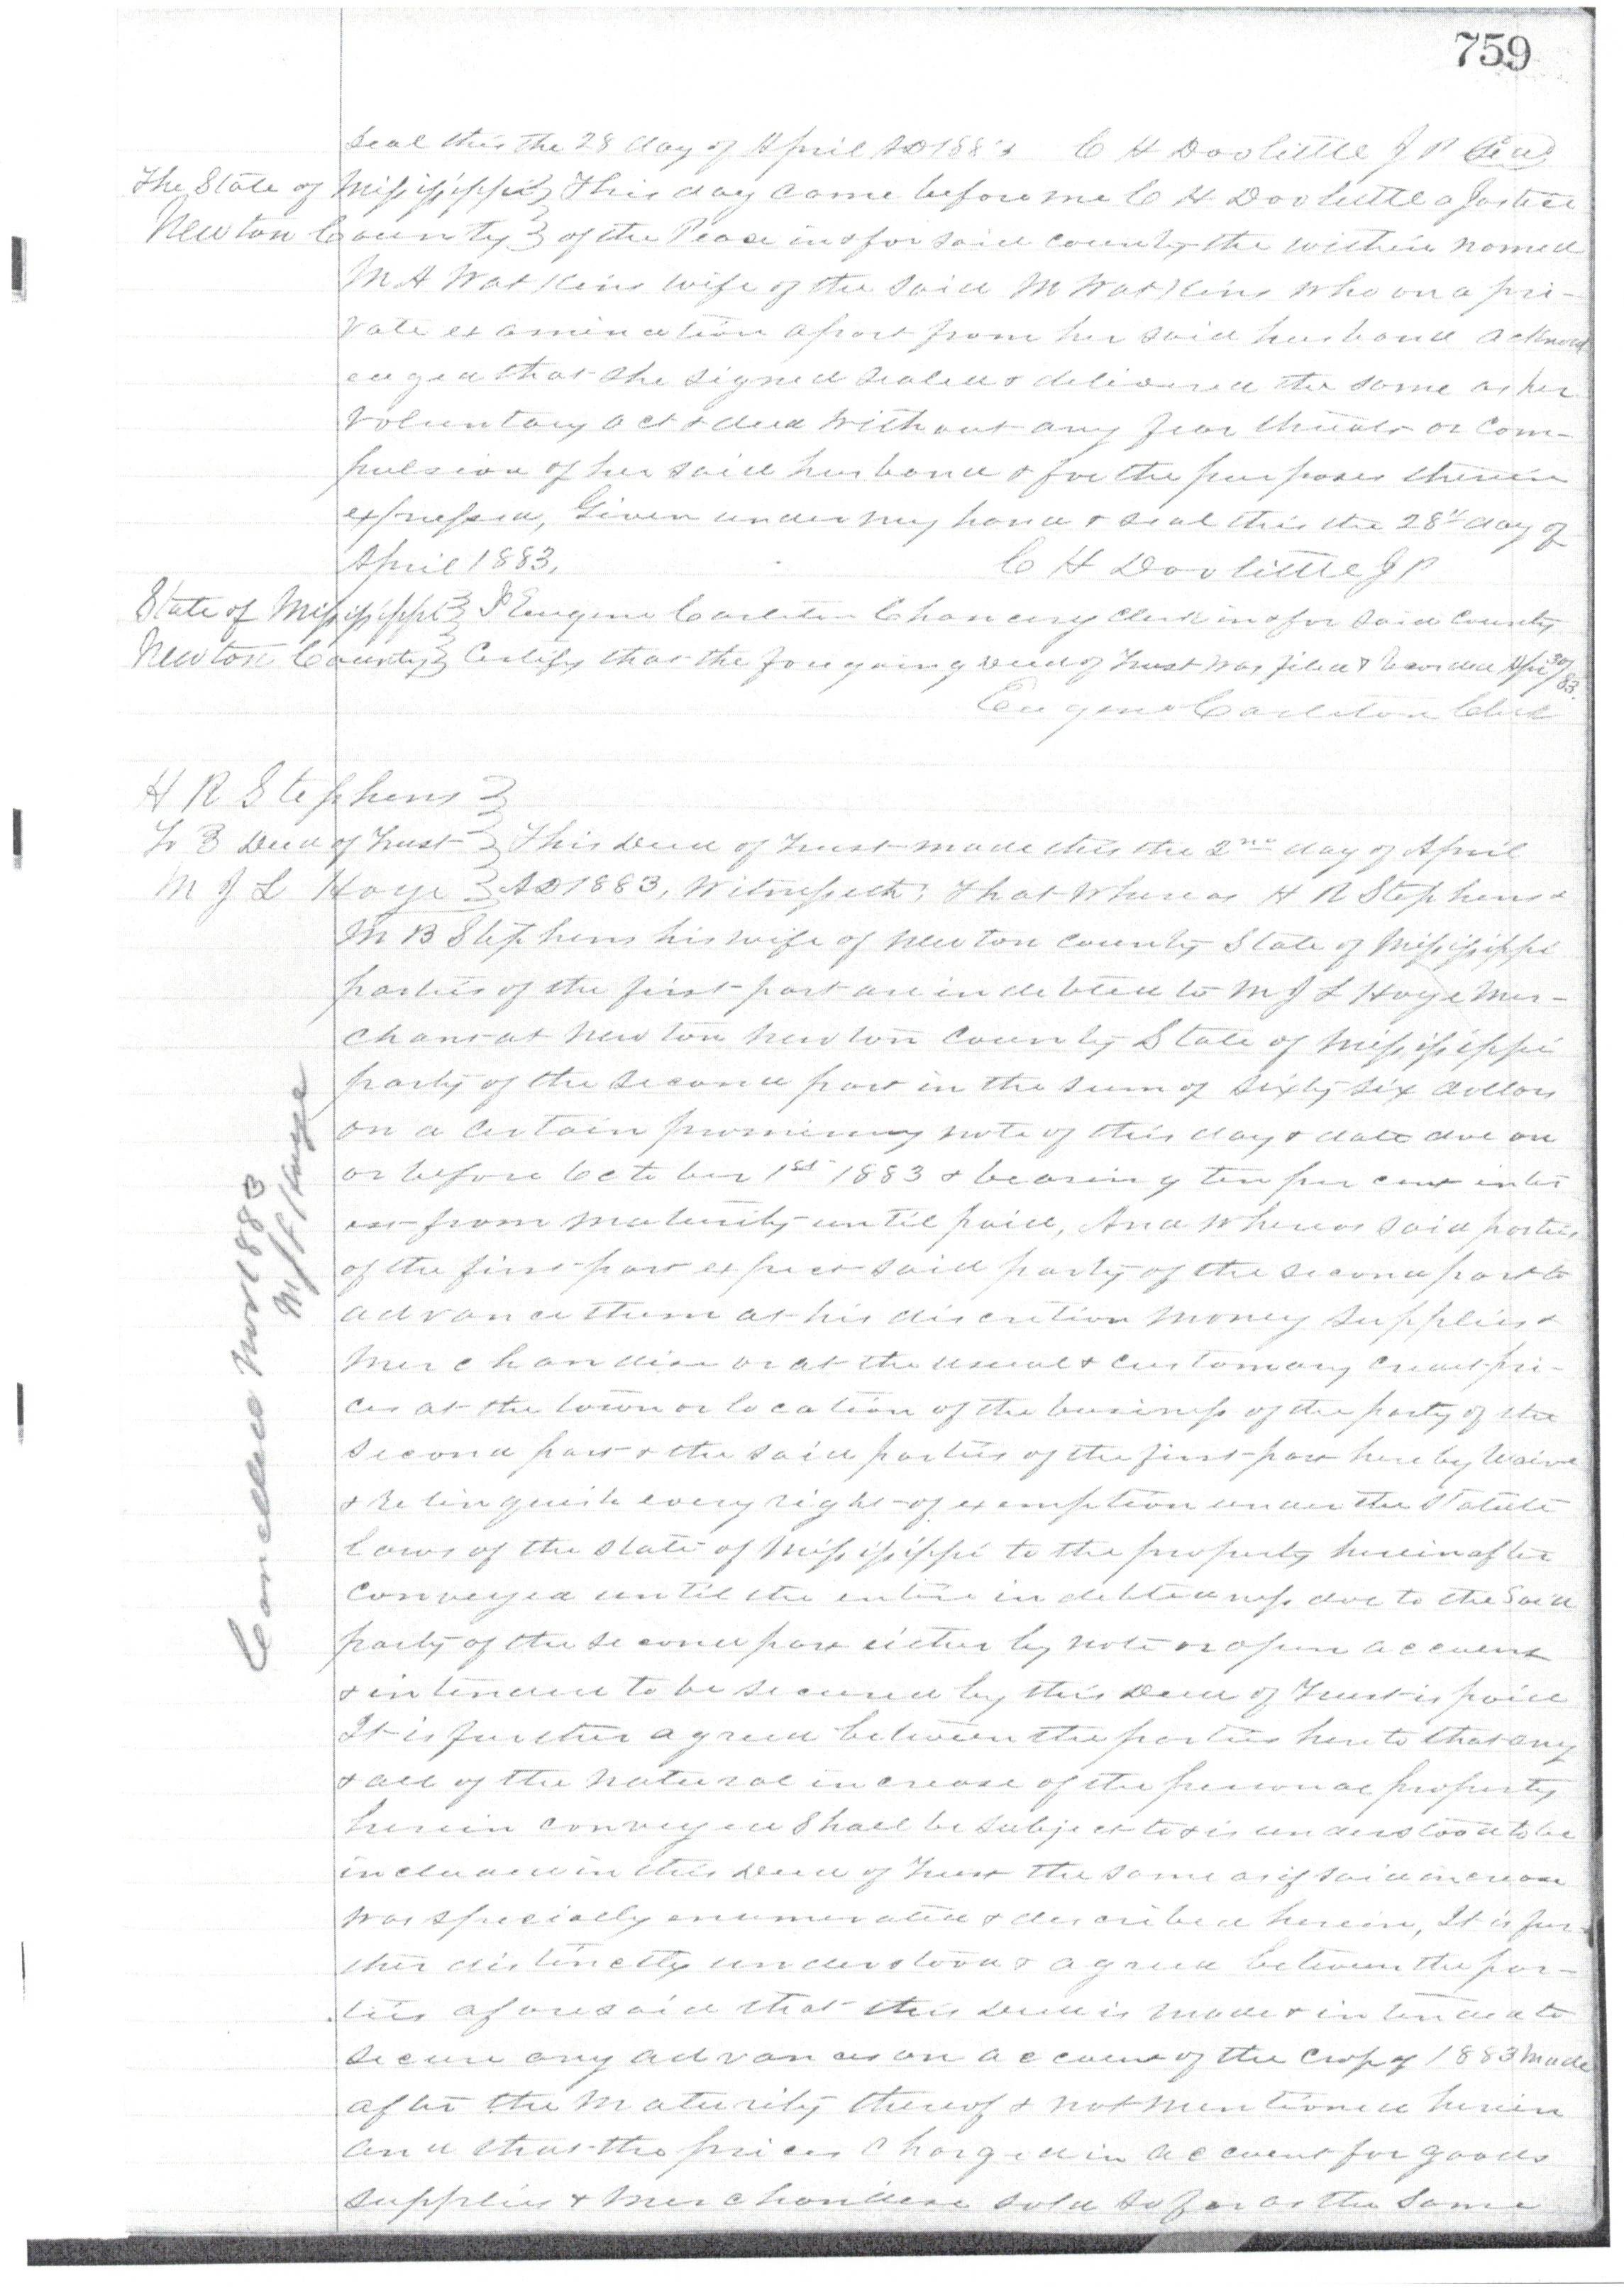 759
Seal this the 28 day of April AD 1883 C H Doolittle J P Seal
The State of Mississippi } This day came before me C H Doolittle a Justice
Newton County } of the Peace in & for said county the within named
M A Watkins wife of the said M Watkins who on a pri-
vate examination apart from her said husband acknowl
edged that she signed sealed & delivered the same as her
voluntary act & deed without any fear threats or com-
pulsion of her said husband & for the purposes therein
expressed, Given under my hand & seal this the 28" day of
April 1883. C H Doolittle J P
State of Mississippi } I Eugene Carleton Chancery Clerk in & for said County
Newton County } Certify that the foregoing Deed of Trust was filed & Recorded Apr 30/83.
Eugene Carleton Clerk
H R Stephens }
To } Deed of Trust } This Deed of Trust made this the 2nd day of April
M J L Hoye } AD 1883, Witnesseth; That Whereas H R Stephens &
M B Stephens his wife of Newton county State of Mississippi
parties of the first part are indebted to M J L Hoye Mer-
chant at Newton Newton County State of Mississippi
party of the second part in the sum of sixty six dollars
on a certain promissory note of this day & date due on
or before October 1st 1883 & bearing ten per cent inter
est from maturity until paid, And whereas said parties
of the first part expect said party of the second part to
advance them at his discretion money supplies &
merchandise or at the usual & customary credit pri-
ces at the town or location of the business of the party of the
second part & the said parties of the first part hereby waive
& relinquish every right of exemption under the statute
laws of the state of Mississippi to the property hereinafter
conveyed until the entire indebtedness due to the said
party of the second part either by note or open account
& intended to be secured by this Deed of Trust is paid
It is further agreed between the parties hereto that any
& all of the natural increase of the personal property
herein conveyed shall be subject to & is understood to be
included in this Deed of Trust the same as if said increase
was specially enumerated & described herein, It is fur-
ther distinctly understood & agreed between the par-
ties aforesaid that this deed is made & intended to
secure any advances on account of the crop of 1883 made
after the maturity thereof & not mentioned herein
and that the prices charged in account for goods
supplies & merchandise sold so far as the same
Cancelled Nov 1 1883
M J L Hoye